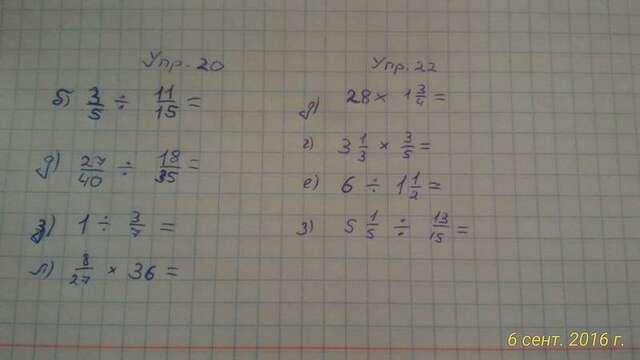 Упр. 20
б) 3/5 ÷ 11/15 =
д) 27/40 ÷ 18/35 =
з) 1 ÷ 3/7 =
л) 8/27 × 36 =
Упр. 22
д) 28 × 1 3/4 =
г) 3 1/3 × 3/5 =
е) 6 ÷ 1 1/2 =
з) 5 1/5 ÷ 13/15 =
6 сент. 2016 г.